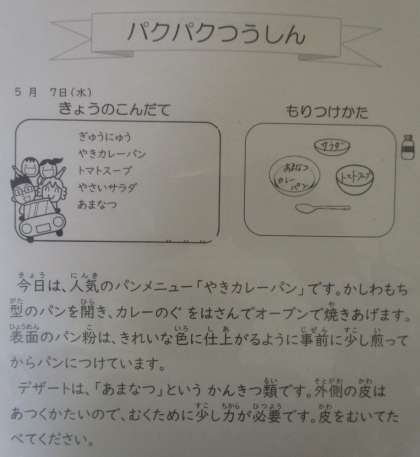 パクパクつうしん
5月 7日(水)
きょうのこんだて
ぎゅうにゅう
やきカレーパン
トマトスープ
やさいサラダ
あまなつ
もりつけかた
サラダ
あまなつ
カレーパン
トマトスープ
今日は、人気のパンメニュー「やきカレーパン」です。かしわもち
型のパンを開き、カレーのぐをはさんでオーブンで焼きあげます。
表面のパン粉は、きれいな色に仕上がるように事前に少し煎って
からパンにつけています。
デザートは、「あまなつ」という かんきつ類です。外側の皮は
あつくかたいので、むくために少し力が必要です。皮をむいてた
べてください。